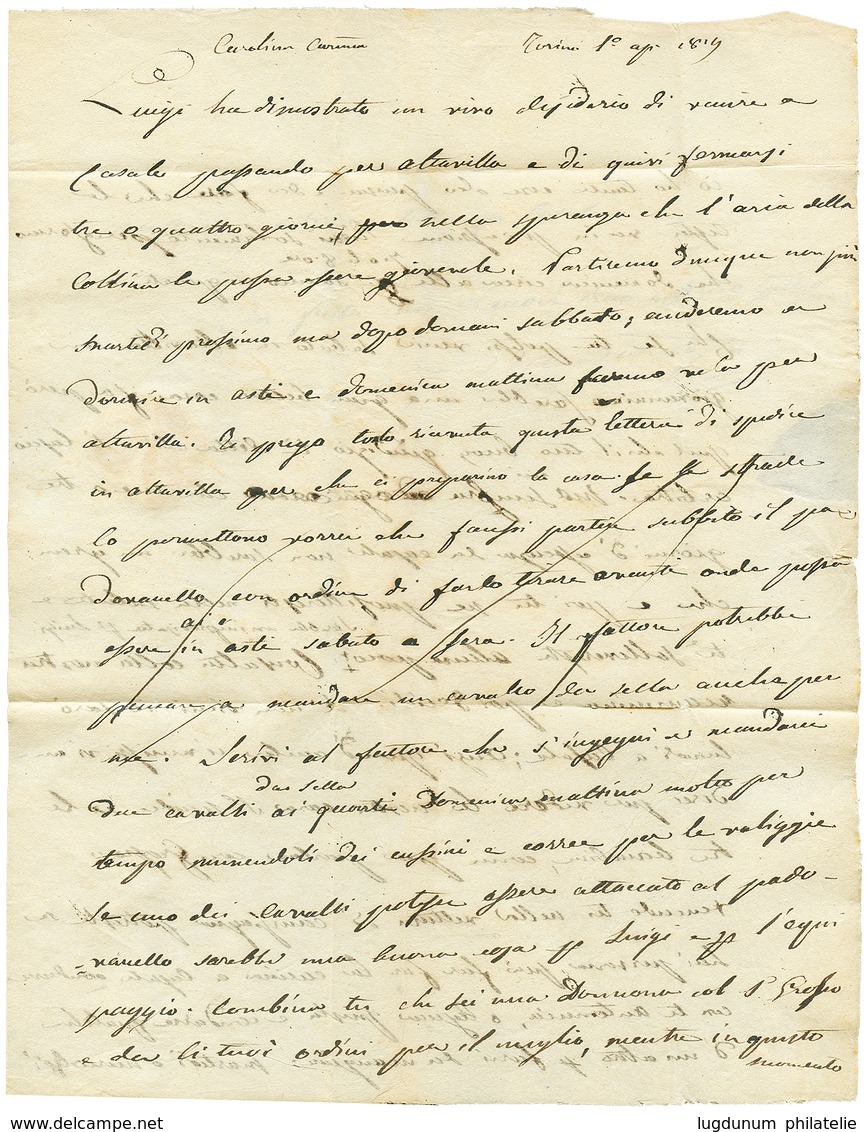 Carolina Carma Torino 1º ap. 1819
Luigi ha dimostrato un vivo desiderio di venire a
Casale passando per altavilla e di quivi fermarsi
tre o quattro giorni, nella speranza che l'aria della
Collina le possa essere giovevole. Partiremo dunque non più
martedì prossimo ma dopo domani sabbato; anderemo a
dormire in asti e domenica mattina faremo vela per
altavilla. Ti prego tosto ricevuta questa lettera di spedire
in altavilla per che ci preparino la casa. Se le strade
lo permettono vorrei che facessi partire subbito il pa
dovanello con ordine di farlo tirare avanti onde possa
essere in asti sabato a sera. Il fattore potrebbe
pensare a mandare un cavallo da sella anche per
me. Scrivi al fattore che s'ingegni a mandarci
da sella
due cavalli ai quarti Domenica mattina molto per
tempo munendoli dei cussini e corree per le valiggie
se uno dei cavalli potesse essere attaccato al pado-
-vanello sarebbe una buona cosa p Luigi e p l'equi
paggio. Combina tu che sei una Donnona col S. Grosso
e da li tuoi ordini per il meglio, mentre in questo
momento
lugdunum philatelie